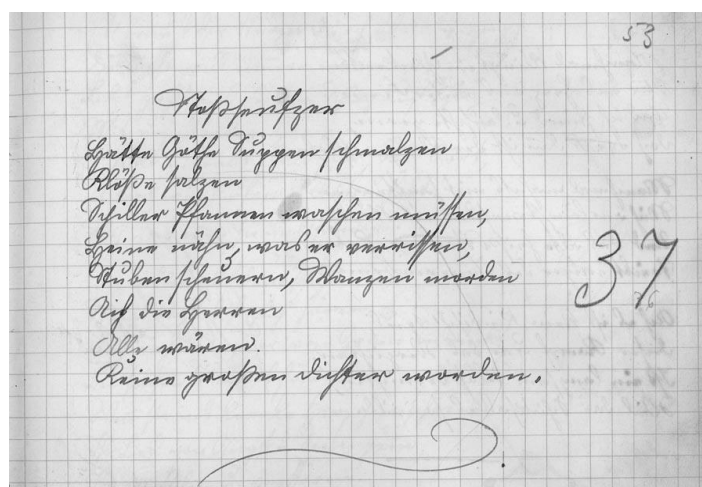 53
Stoßseufzer
Hätte Göthe Suppen schmalzen
Klöße salzen
Schiller Pfannen waschen müssen,
Heine nähn, was er verrissen,
Stuben scheuern, Wanzen morden
Ach die Herren
Alle wären.
Keine großen Dichter worden.
37